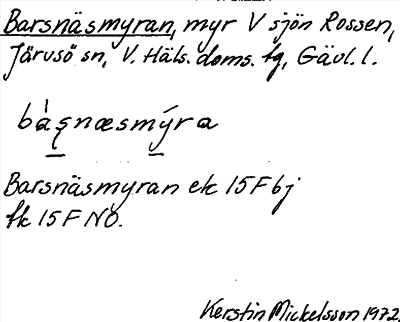 Barsnäsmyran, myr V sjön Rossen,
Järvsö sn, V. Häls. doms. tg, Gävl. l.
bàs̨næsmýra
Barsnäsmyran ek 15F6j
fk 15F NO.
Kerstin Mickelsson 1972.